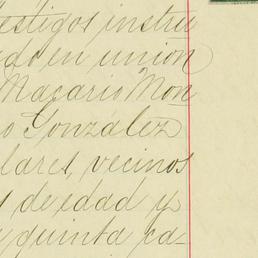 estigos instru
do en union
Macario Mon
o Gonzalez
lares, vecinos
s de edad y
quinta ca-